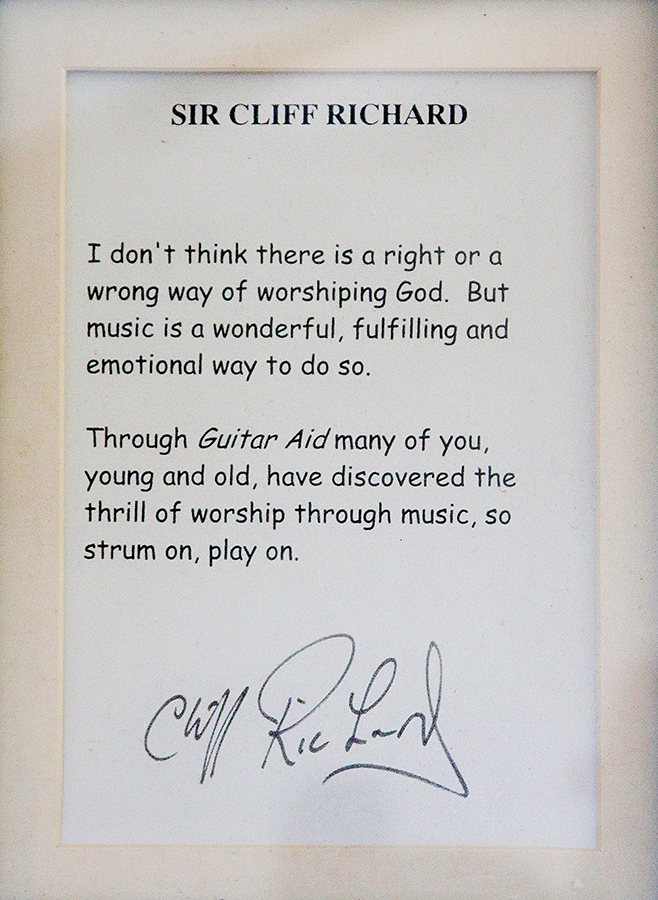 SIR CLIFF RICHARD
I don't think there is a right or a
wrong way of worshiping God. But
music is a wonderful, fulfilling and
emotional way to do so.
Through Guitar Aid many of you,
young and old, have discovered the
thrill of worship through music, so
strum on, play on.
Cliff Richard